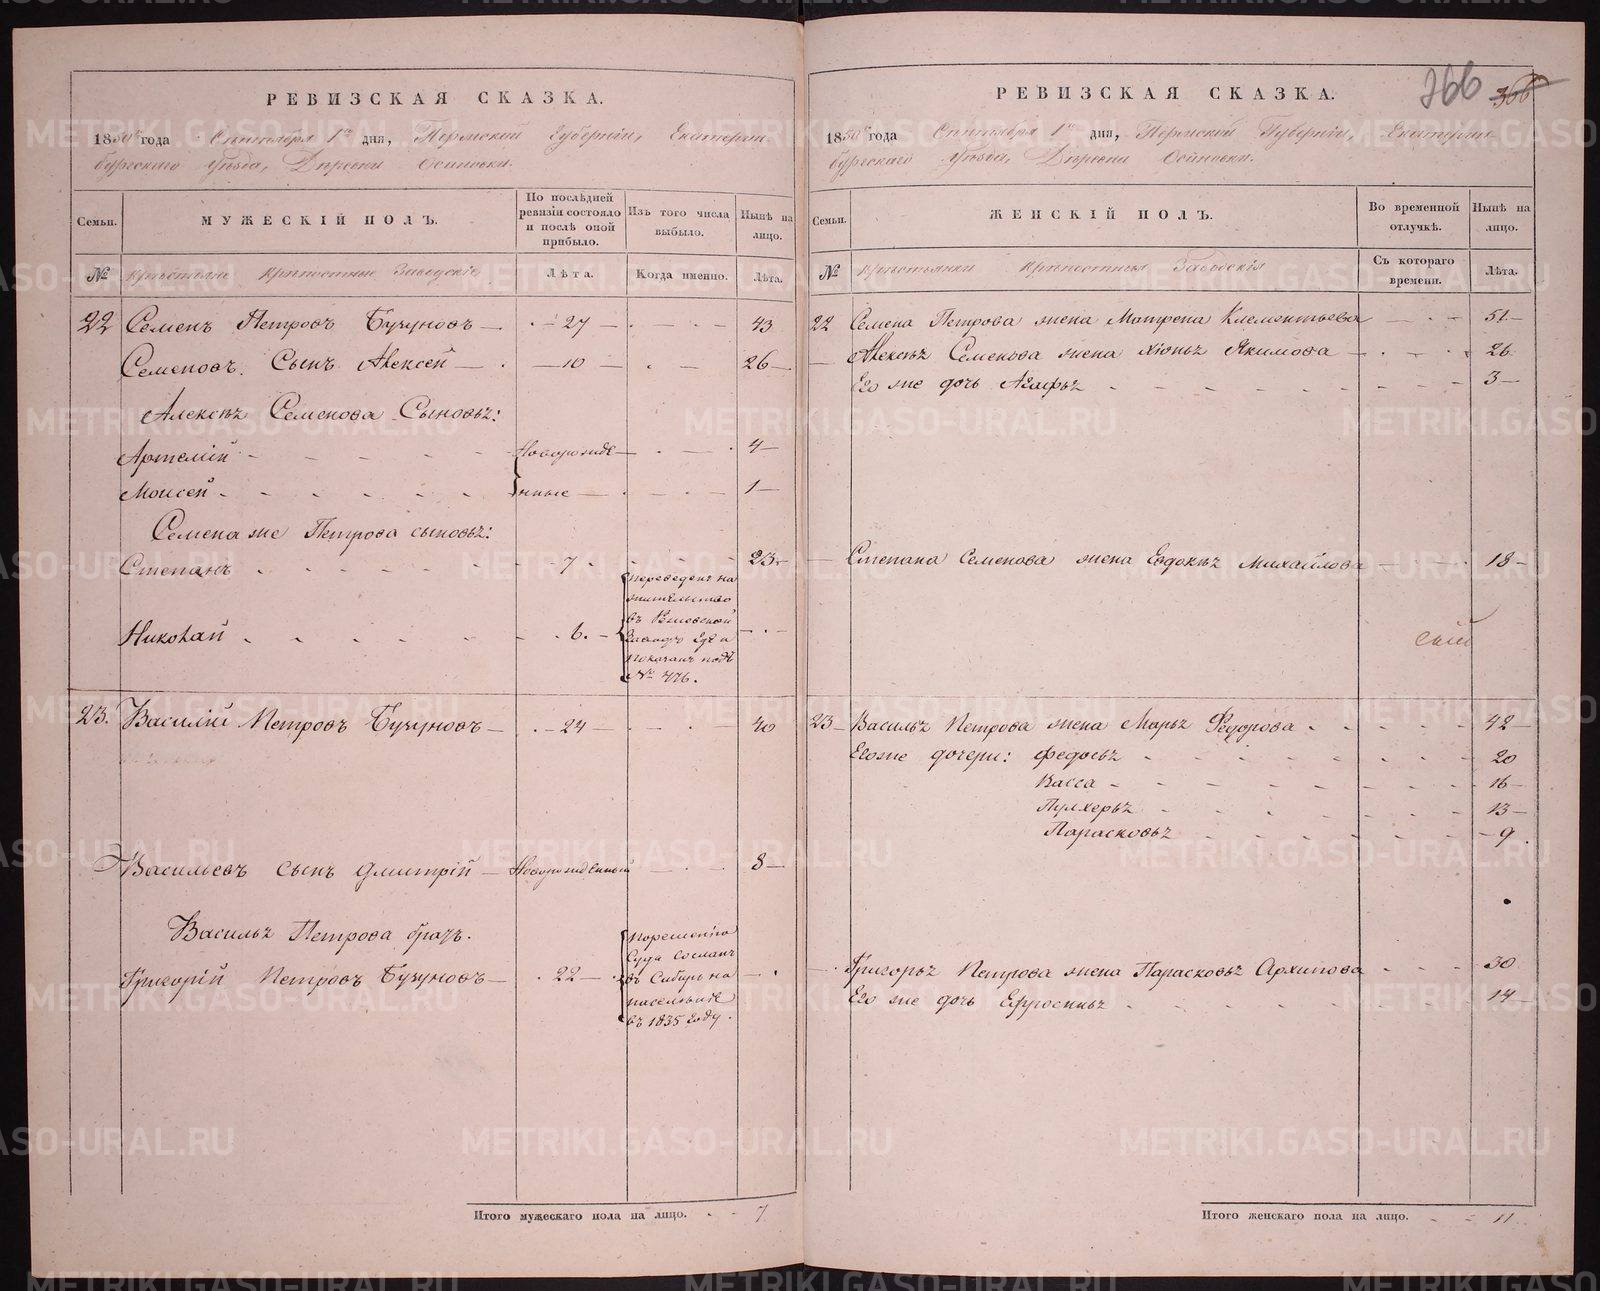 РЕВИЗСКАЯ СКАЗКА.
1850го года Сентября 1го дня, Пермской Губерніи, Екатерин-
бургскаго Уѣзда, Деревни Осиновки.
Семьи.
МУЖЕСКІЙ ПОЛЪ.
По послѣдней ревизіи состояло и послѣ оной прибыло.
Изъ того числа выбыло.
Нынѣ на лицо.
№
крестьяне крѣпостные Заводскіе
Лѣта.
Когда именно.
Лѣта.
22 Семенъ Петровъ Бузуновъ — 27 — 43
Семеновъ Сынъ Алексей — 10 — 26
Алексѣя Семенова Сыновья:
Артемій Новорожде- 4
Моисей нные 1
Семена же Петрова сыновья:
Степанъ 7 23
Николай 6.
переведенъ на
жительство
въ
Заводъ гдѣ и
показанъ подъ
№ 476.
23. Василій Петровъ Бузуновъ — 24 — 40
Васильевъ сынъ Дмитрій — Новорожденный 8
Василья Петрова братъ.
Григорій Петровъ Бузуновъ — 22
порешенію
Суда сосланъ
въ Сибирь на
поселеніе
въ 1835 году.
Итого мужескаго пола на лицо. 7
266 366
РЕВИЗСКАЯ СКАЗКА.
1850го года Сентября 1го дня, Пермской Губерніи, Екатерин-
бургскаго Уѣзда, Деревни Осиновки.
Семьи.
ЖЕНСКІЙ ПОЛЪ.
Во временной отлучкѣ.
Нынѣ на лицо.
№
крестьянки крѣпостныя Заводскія
Съ котораго времени.
Лѣта.
22 Семена Петрова жена Матрена Клементьева 51
Алексѣя Семенова жена Якимова 26
Его же дочь Агафья 3
Степана Семенова жена Евдокья Михайлова 18
23 Василья Петрова жена Марья Федорова 42
Егоже дочери: Федосья 20
Васса 16
Пулхерья 13
Парасковья 9
Григорья Петрова жена Парасковья Архипова 30
Его же дочь Ефросинья 14
Итого женскаго пола на лицо. 11
METRIKI.GASO-URAL.RU